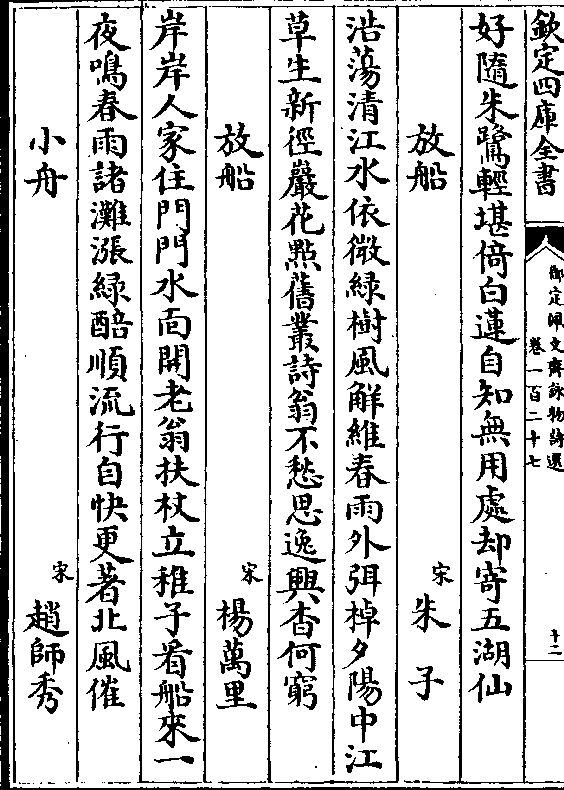 欽定四庫全書
御定佩文齋詠物詩選
卷一百二十七
十二
好隨朱鷺輕堪倚白蓮自知無用處却寄五湖仙
放船
宋
朱子
浩蕩清江水依微綠樹風解維春雨外弭棹夕陽中江
草生新徑巖花點舊叢詩翁不愁思逸興杳何窮
放船
宋
楊萬里
岸岸人家住門門水面開老翁扶杖立稚子看船來一
夜鳴春雨諸灘漲綠醅順流行自快更著北風催
小舟
宋
趙師秀